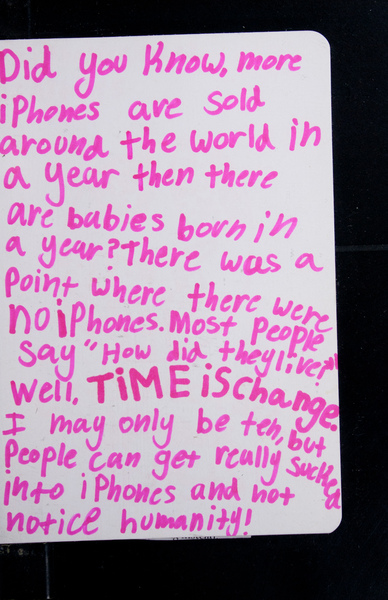 Did you Know, more
iPhones are sold
around the world in
a year then there
are babies born in
a year? There was a
point where there were
no iPhones. Most people
say "How did they live?"
Well, TiME iS Change.
I may only be ten, but
people can get really sucked
into iPhones and not
notice humanity!